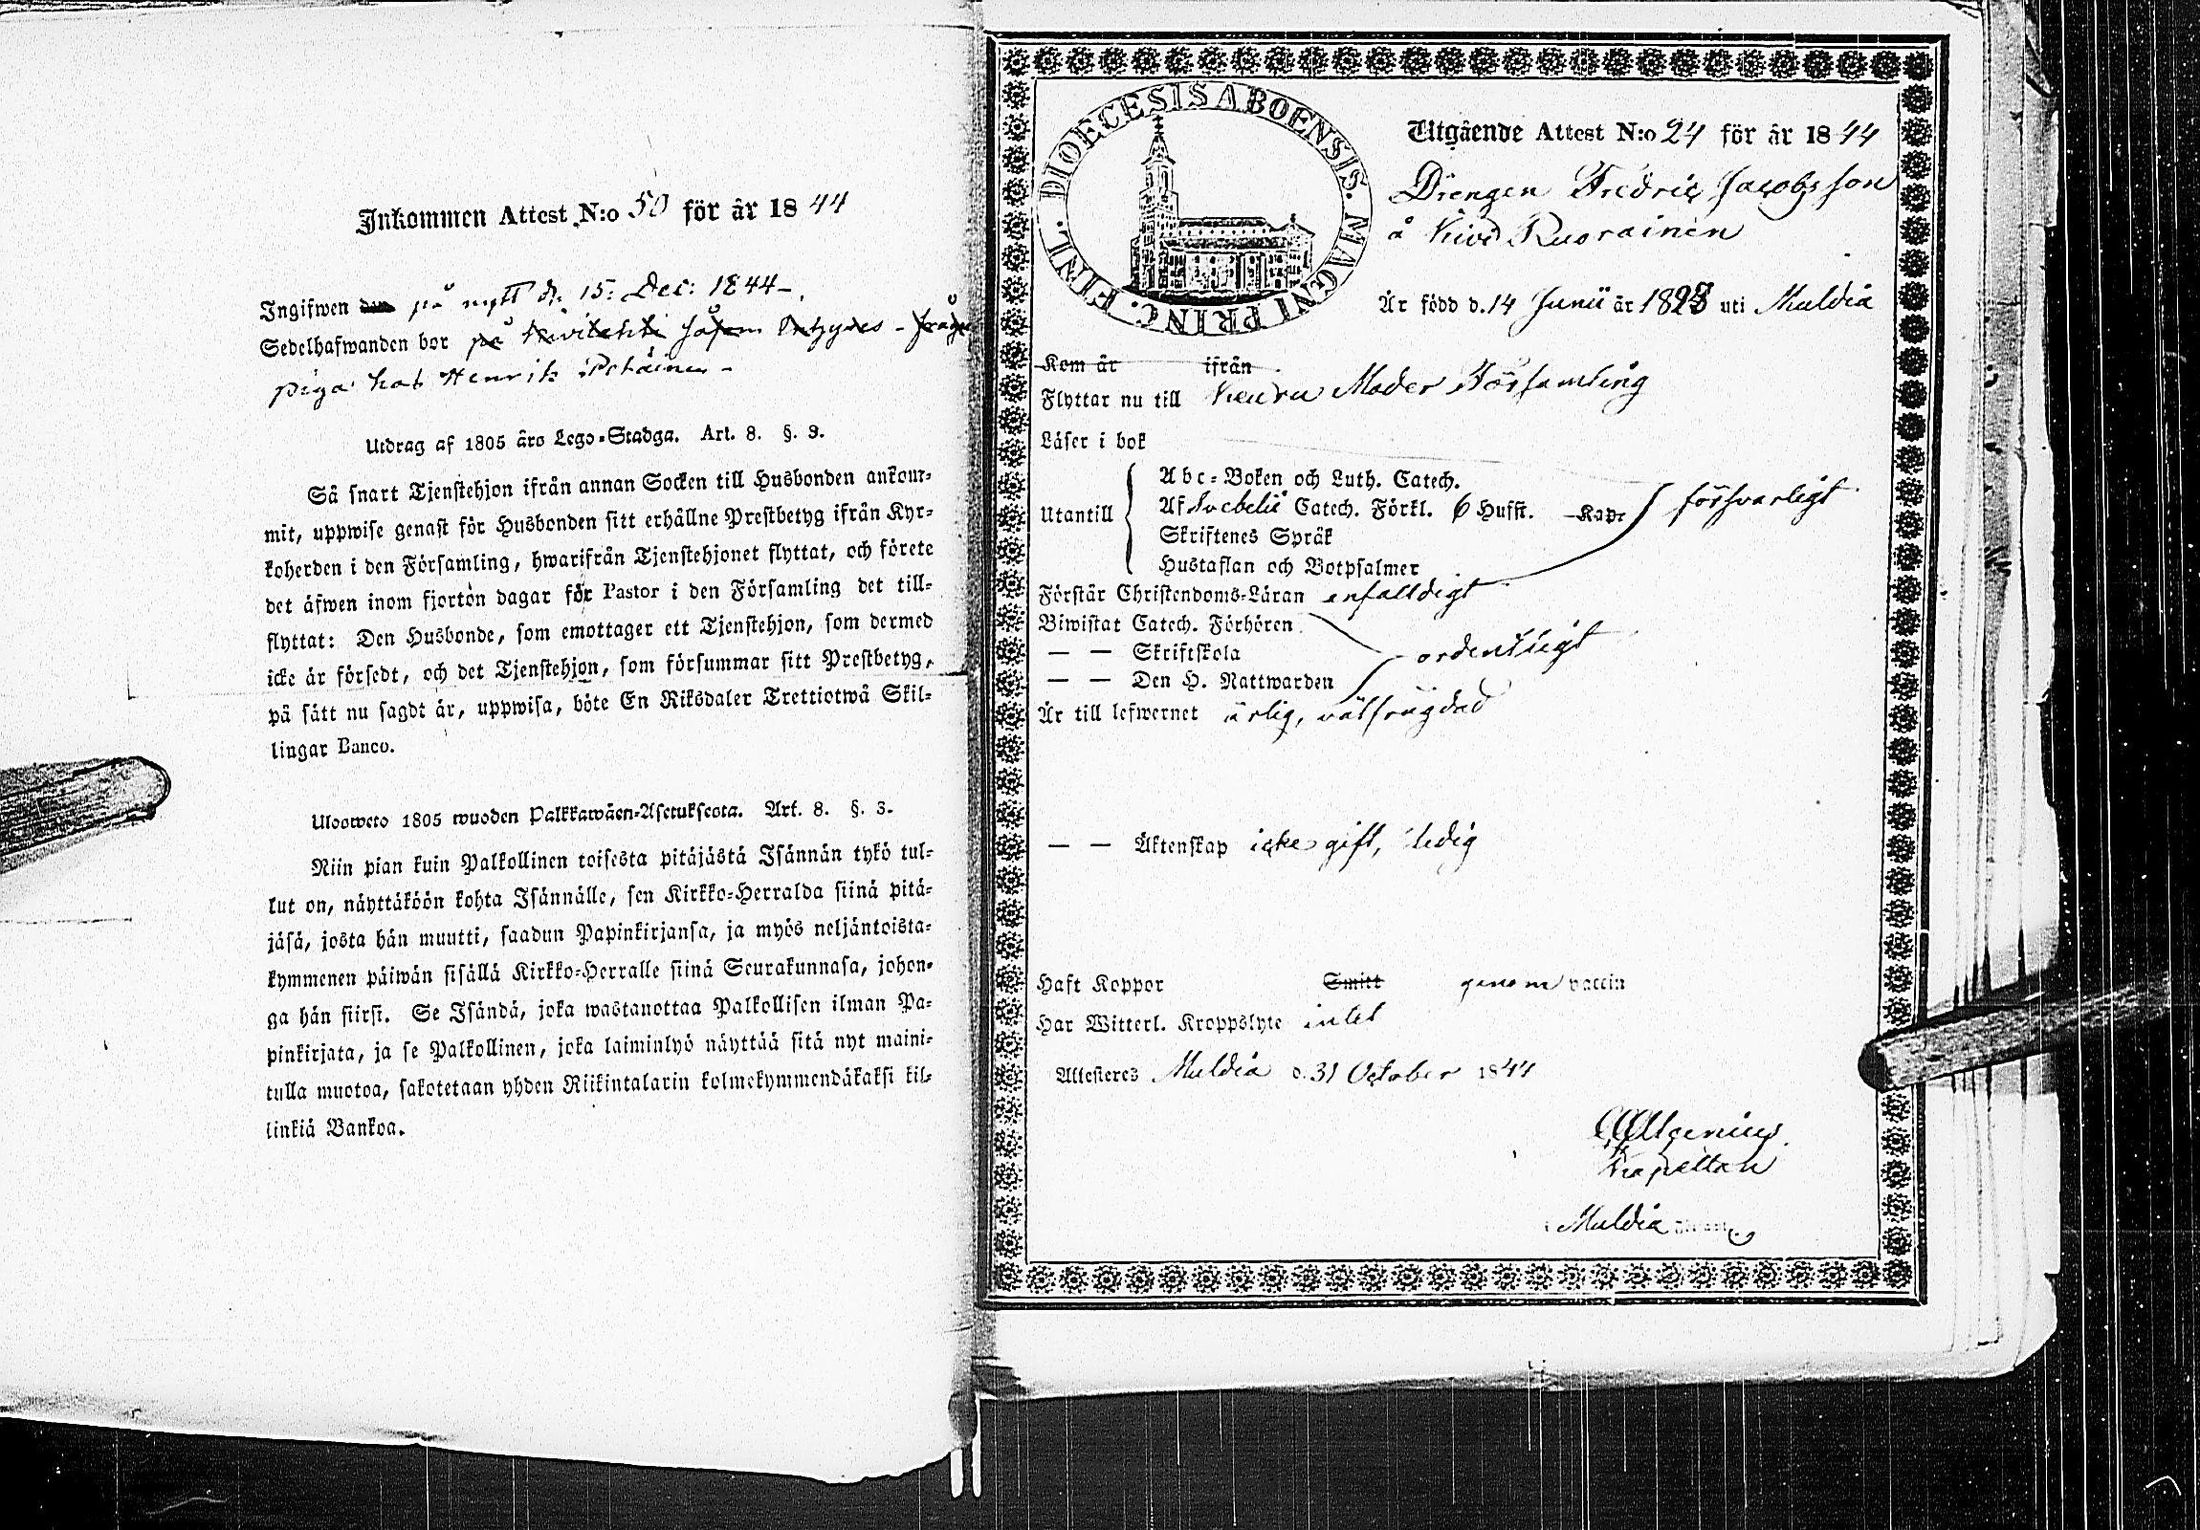 Inkommen Attest N:o 50 för år 1844
Ingifwen den på nytt d. 15: Dec: 1844
Sedelhafwanden bor på
piga hos Henrik
Utdrag af 1805 års Lego-Stadga. Art. 8. §. 3.
Så snart Tjenstehjon ifrån annan Socken till Husbonden ankom-
mit, uppwise genast för Husbonden sitt erhållne Prestbetyg ifrån Kyr-
koherden i den Församling, hwarifrån Tjenstehjonet flyttat, och förete
det äfwen inom fjorton dagar för Pastor i den Församling det till-
flyttat: Den Husbonde, som emottager ett Tjenstehjon, som dermed
icke är försedt, och det Tjenstehjon, som försummar sitt Prestbetyg,
på sätt nu sagdt är, uppwisa, böte En Riksdaler Trettiotwå Skil-
lingar Banco.
Ulosweto 1805 wuoden Palkkawäen-Asetuksesta. Art. 8. §. 3.
Niin pian kuin Palkollinen toisesta pitäjästä Isännän tykö tul-
lut on, näyttäköön kohta Isännälle, sen Kirkko-Herralda siinä pitä-
jäsä, josta hän muutti, saadun Papinkirjansa, ja myös neljäntoista-
kymmenen päiwän sisällä Kirkko-Herralle siinä Seurakunnasa, johon-
ga hän siirsi. Se Isändä, joka wastanottaa Palkollisen ilman Pa-
pinkirjata, ja se Palkollinen, joka laiminlyö näyttää sitä nyt maini-
tulla muotoa, sakotetaan yhden Riikintalarin kolmekymmendäkaksi kil-
linkiä Bankoa.
DIOECESIS ABOENSIS. MAGNI PRINC. FINL.
Utgående Attest N:o 24 för år 1844
Drengen Fredric Jacobsson
å Kivi Ruorainen
Är född d. 14 Junii år 1823 uti Muldia
Kom år ifrån
Flyttar nu till Keuru Moder Församling
Läser i bok
Utantill
Abc-Boken och Luth. Catech.
Af Svebelii Catech. Förkl. 6 Hufst. Kap. försvarligt
Skriftenes Språk
Hustaflan och Botpsalmer
Förstår Christendoms-Läran enfalldigt
Biwistat Catech. Förhören
— — Skriftskola ordentligt
— — Den H. Nattwarden
Är till lefwernet ärlig, välfrägdad
— — Äktenskap icke gift, ledig
Haft Koppor Smitt genom vaccin
Har Witterl. Kroppslyte intet
Attesteres Muldia d. 31 October 1844
Kapellan
i Muldia